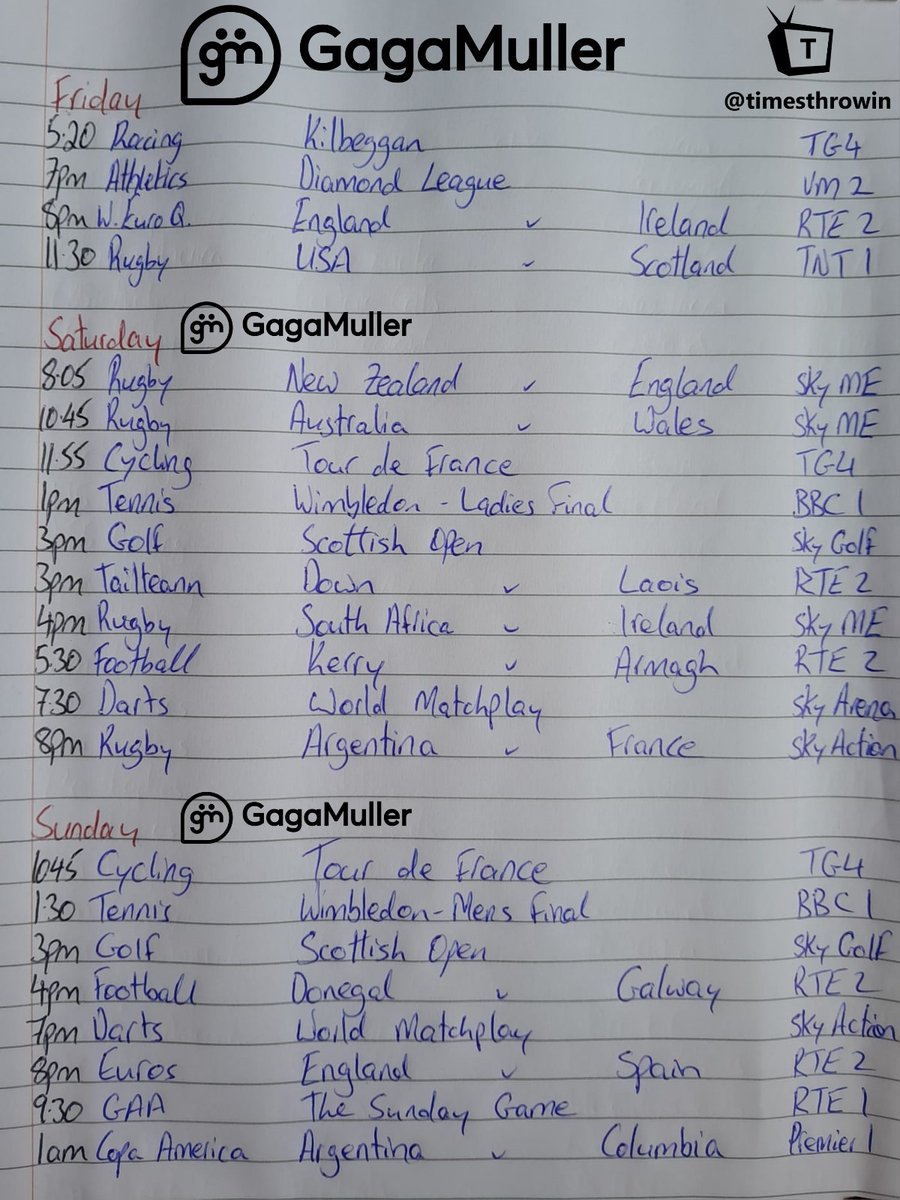 GagaMuller
T
@timesthrowin
Friday
5:20 Racing Kilbeggan TG4
7pm Athletics Diamond League VM 2
8pm W. Euro Q. England v Ireland RTE 2
11:30 Rugby USA v Scotland TNT 1
Saturday GagaMuller
8:05 Rugby New Zealand v England Sky ME
10:45 Rugby Australia v Wales Sky ME
11:55 Cycling Tour de France TG4
1pm Tennis Wimbledon - Ladies Final BBC 1
3pm Golf Scottish Open Sky Golf
3pm Tailteann Down v Laois RTE 2
4pm Rugby South Africa v Ireland Sky ME
5:30 Football Kerry v Armagh RTE 2
7:30 Darts World Matchplay Sky Arena
8pm Rugby Argentina v France Sky Action
Sunday GagaMuller
1045 Cycling Tour de France TG4
1:30 Tennis Wimbledon - Mens Final BBC 1
3pm Golf Scottish Open Sky Golf
4pm Football Donegal v Galway RTE 2
7pm Darts World Matchplay Sky Action
8pm Euros England v Spain RTE 2
9:30 GAA The Sunday Game RTE 1
1am Copa America Argentina v Columbia Premier 1